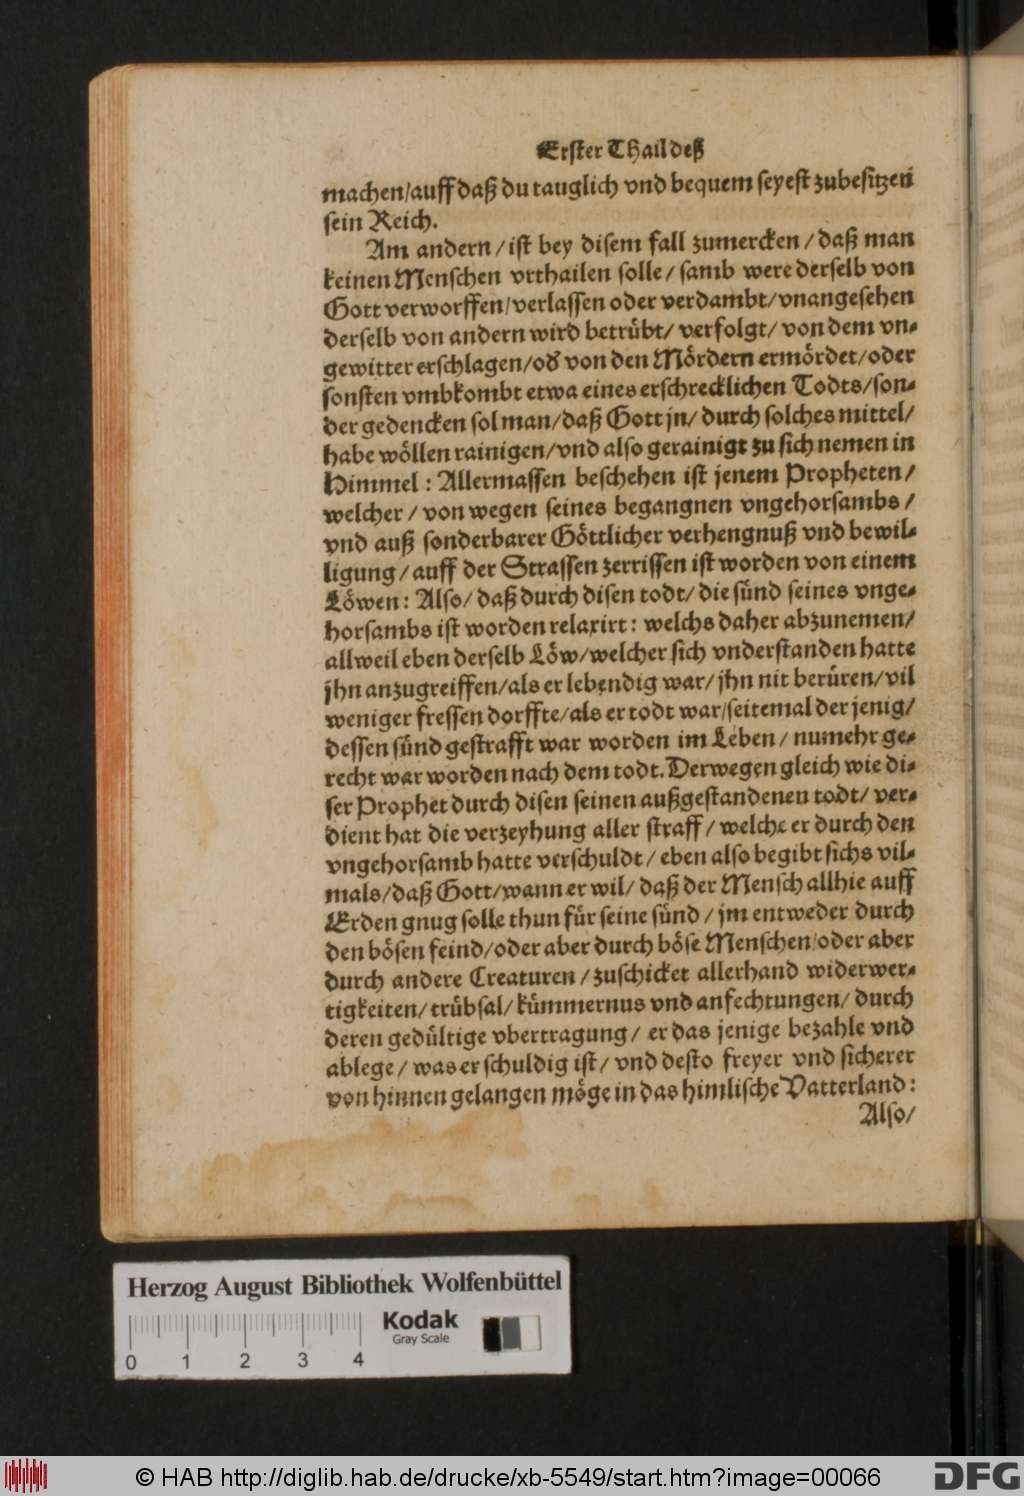 Erster Thail deß
machen/auff daß du tauglich vnd bequem seyest zubesitzen
sein Reich.
Am andern/ist bey disem fall zumercken/daß man
keinen Menschen vrthailen solle/samb were derselb von
Gott verworffen/verlassen oder verdambt/vnangesehen
derselb von andern wird betrübt/verfolgt/von dem vn-
gewitter erschlagen/od von den Mördern ermördet/oder
sonsten vmbkombt etwa eines erschrecklichen Todts/son-
der gedencken sol man/daß Gott jn/durch solches mittel/
habe wöllen rainigen/vnd also gerainigt zu sich nemen in
Himmel: Allermassen beschehen ist jenem Propheten/
welcher/von wegen seines begangnen vngehorsambs/
vnd auß sonderbarer Göttlicher verhengnuß vnd bewil-
ligung/auff der Strassen zerrissen ist worden von einem
Löwen: Also/daß durch disen todt/die sünd seines vnge-
horsambs ist worden relaxirt: welchs daher abzunemen/
allweil eben derselb Löw/welcher sich vnderstanden hatte
jhn anzugreiffen/als er lebendig war/jhn nit berüren/vil
weniger fressen dorffte/als er todt war/seitemal der jenig/
dessen sünd gestrafft war worden im Leben/numehr ge-
recht war worden nach dem todt. Derwegen gleich wie di-
ser Prophet durch disen seinen außgestandenen todt/ver-
dient hat die verzeyhung aller straff/welche er durch den
vngehorsamb hatte verschuldt/eben also begibt sichs vil-
mals/daß Gott/wann er wil/daß der Mensch allhie auff
Erden gnug solle thun für seine sünd/jm entweder durch
den bösen feind/oder aber durch böse Menschen/oder aber
durch andere Creaturen/zuschicket allerhand widerwer-
tigkeiten/trübsal/kümmernus vnd anfechtungen/durch
deren gedültige vbertragung/er das jenige bezahle vnd
ablege/was er schuldig ist/vnd desto freyer vnd sicherer
von hinnen gelangen möge in das himlische Vatterland:
Also/
Herzog August Bibliothek Wolfenbüttel
Kodak
Gray Scale
0 1 2 3 4
© HAB http://diglib.hab.de/drucke/xb-5549/start.htm?image=00066
DFG